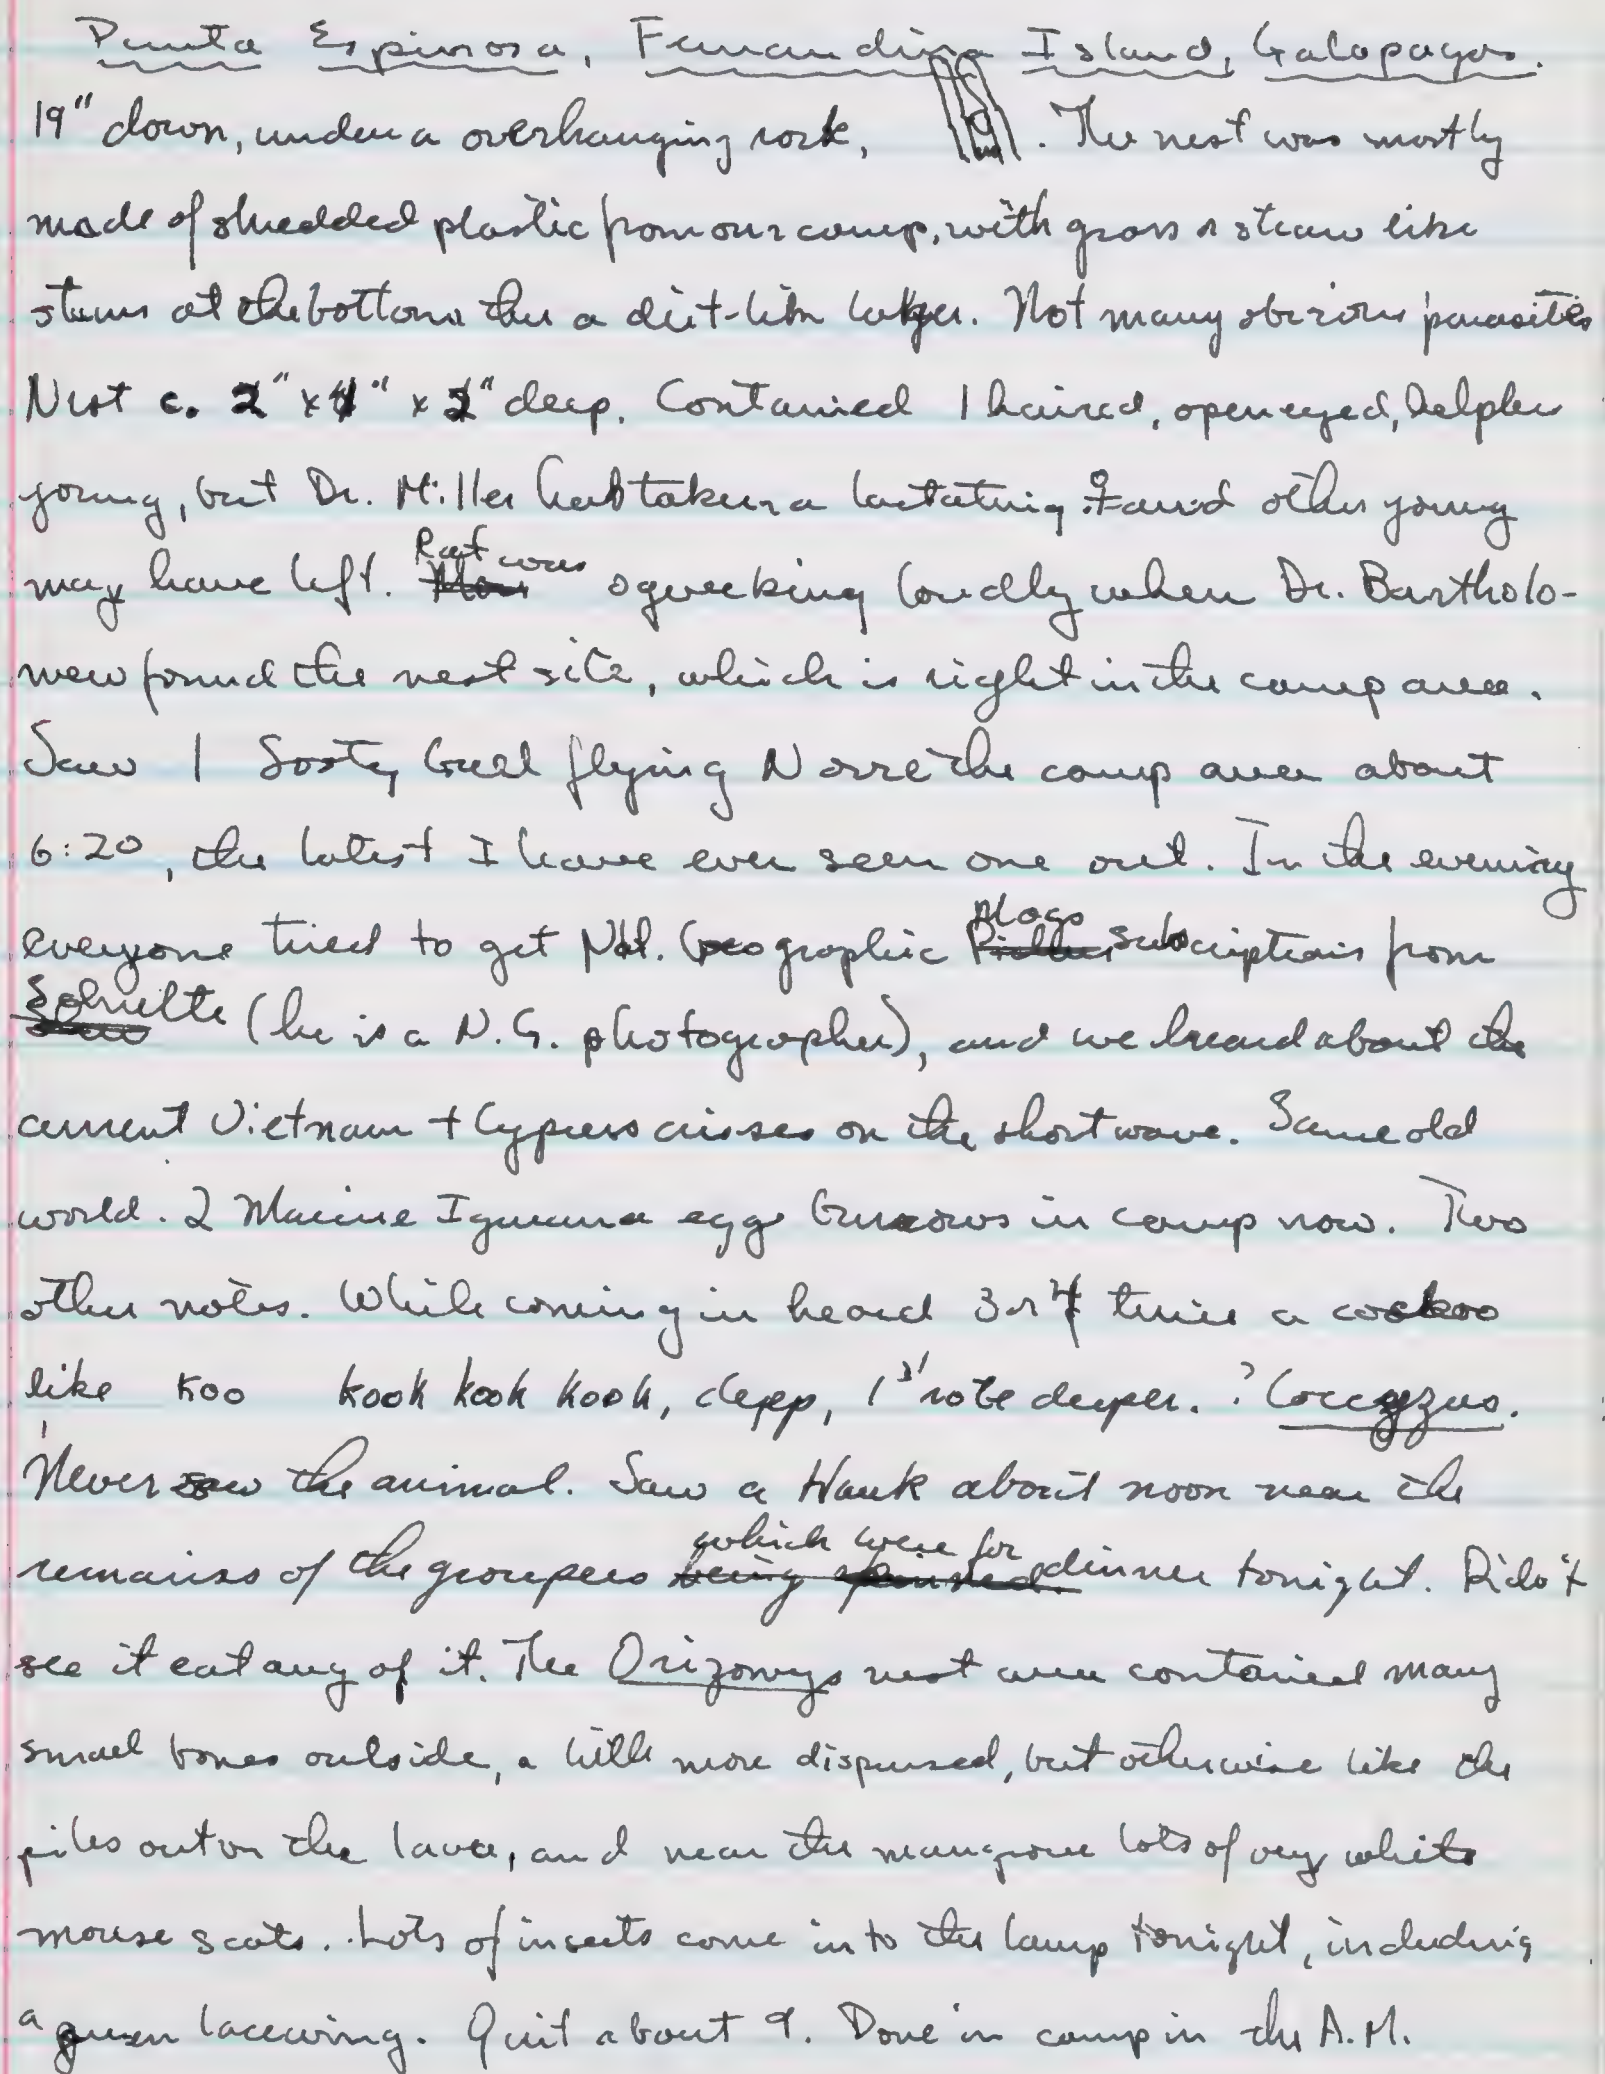 Punta Espinosa, Fernandina Island, Galapagos.
19" down, under a overhanging rock, . The nest was mostly
made of shredded plastic from our camp, with grass or straw like
stems at the bottom then a dirt-like layer. Not many obvious parasites
Nest c. 2" x 4" x 2" deep. Contained 1 haired, open eyed, helpless
young, but Dr. Miller had taken a lactating ♀ and other young
may have left. Rat was squeeking loudly when Dr. Bartholo-
mew found the nest site, which is right in the camp area.
Saw 1 Sooty Gull flying N over the camp area about
6:20, the latest I have ever seen one out. In the evening
everyone tried to get Nat. Geographic Mags subscriptions from
Schulte (he is a N.G. photographer), and we heard about the
current Vietnam + Cyprus crisses on the shortwave. Same old
world. 2 Marine Iguana egg burrows in camp now. Two
other notes. While coming in heard 3 or 4 times a cookoo
like koo kook kook kook, depp, 1st note deeper. ? Coccyzus.
Never saw the animal. Saw a Hawk about noon near the
remains of the groupers which were for dinner tonight. Didn't
see it eat any of it. The Orizomys nest area contained many
small bones outside, a little more dispursed, but otherwise like the
piles out on the lava, and near the mangrove lots of very white
mouse scats. Lots of insects come in to the lamp tonight, including
a green lacewing. Quit about 9. Done in camp in the A.M.